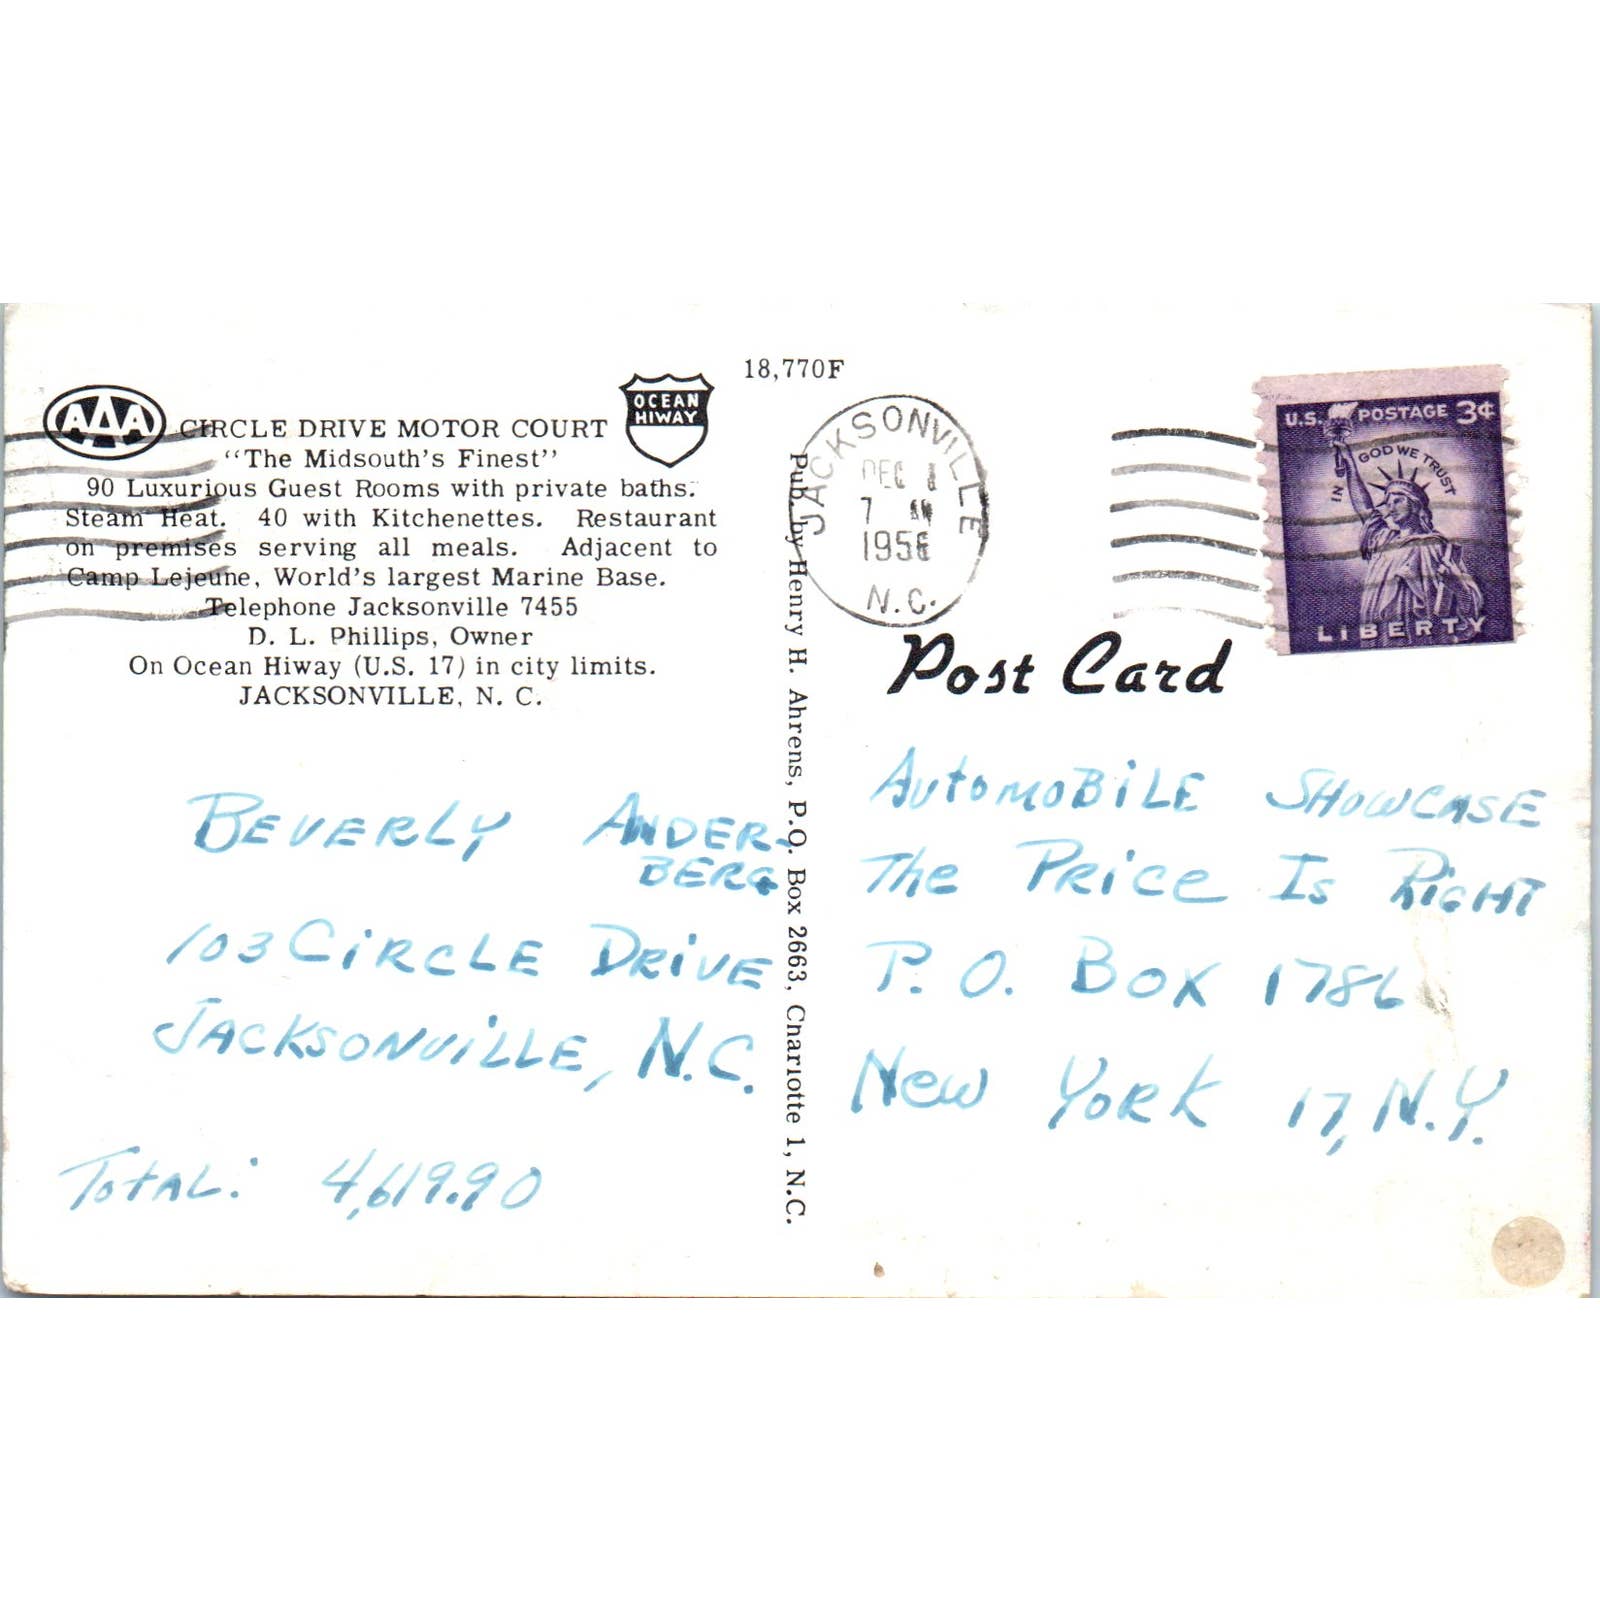 18,770F
AAA
CIRCLE DRIVE MOTOR COURT
OCEAN
HIWAY
"The Midsouth's Finest"
90 Luxurious Guest Rooms with private baths.
Steam Heat. 40 with Kitchenettes. Restaurant
on premises serving all meals. Adjacent to
Camp Lejeune, World's largest Marine Base.
Telephone Jacksonville 7455
D. L. Phillips, Owner
On Ocean Hiway (U.S. 17) in city limits.
JACKSONVILLE, N. C.
BEVERLY ANDER-
BERG
103 CIRCLE DRIVE
JACKSONVILLE, N.C.
TOTAL: 4,619.90
Pub. by Henry H. Ahrens, P.O. Box 2663, Charlotte 1, N.C.
JACKSONVILLE
DEC 1
7
N.C.
U.S. POSTAGE 3¢
IN GOD WE TRUST
LIBERTY
Post Card
AUTOMOBILE SHOWCASE
THE PRICE IS RIGHT
P. O. BOX 1786
NEW YORK 17, N.Y.